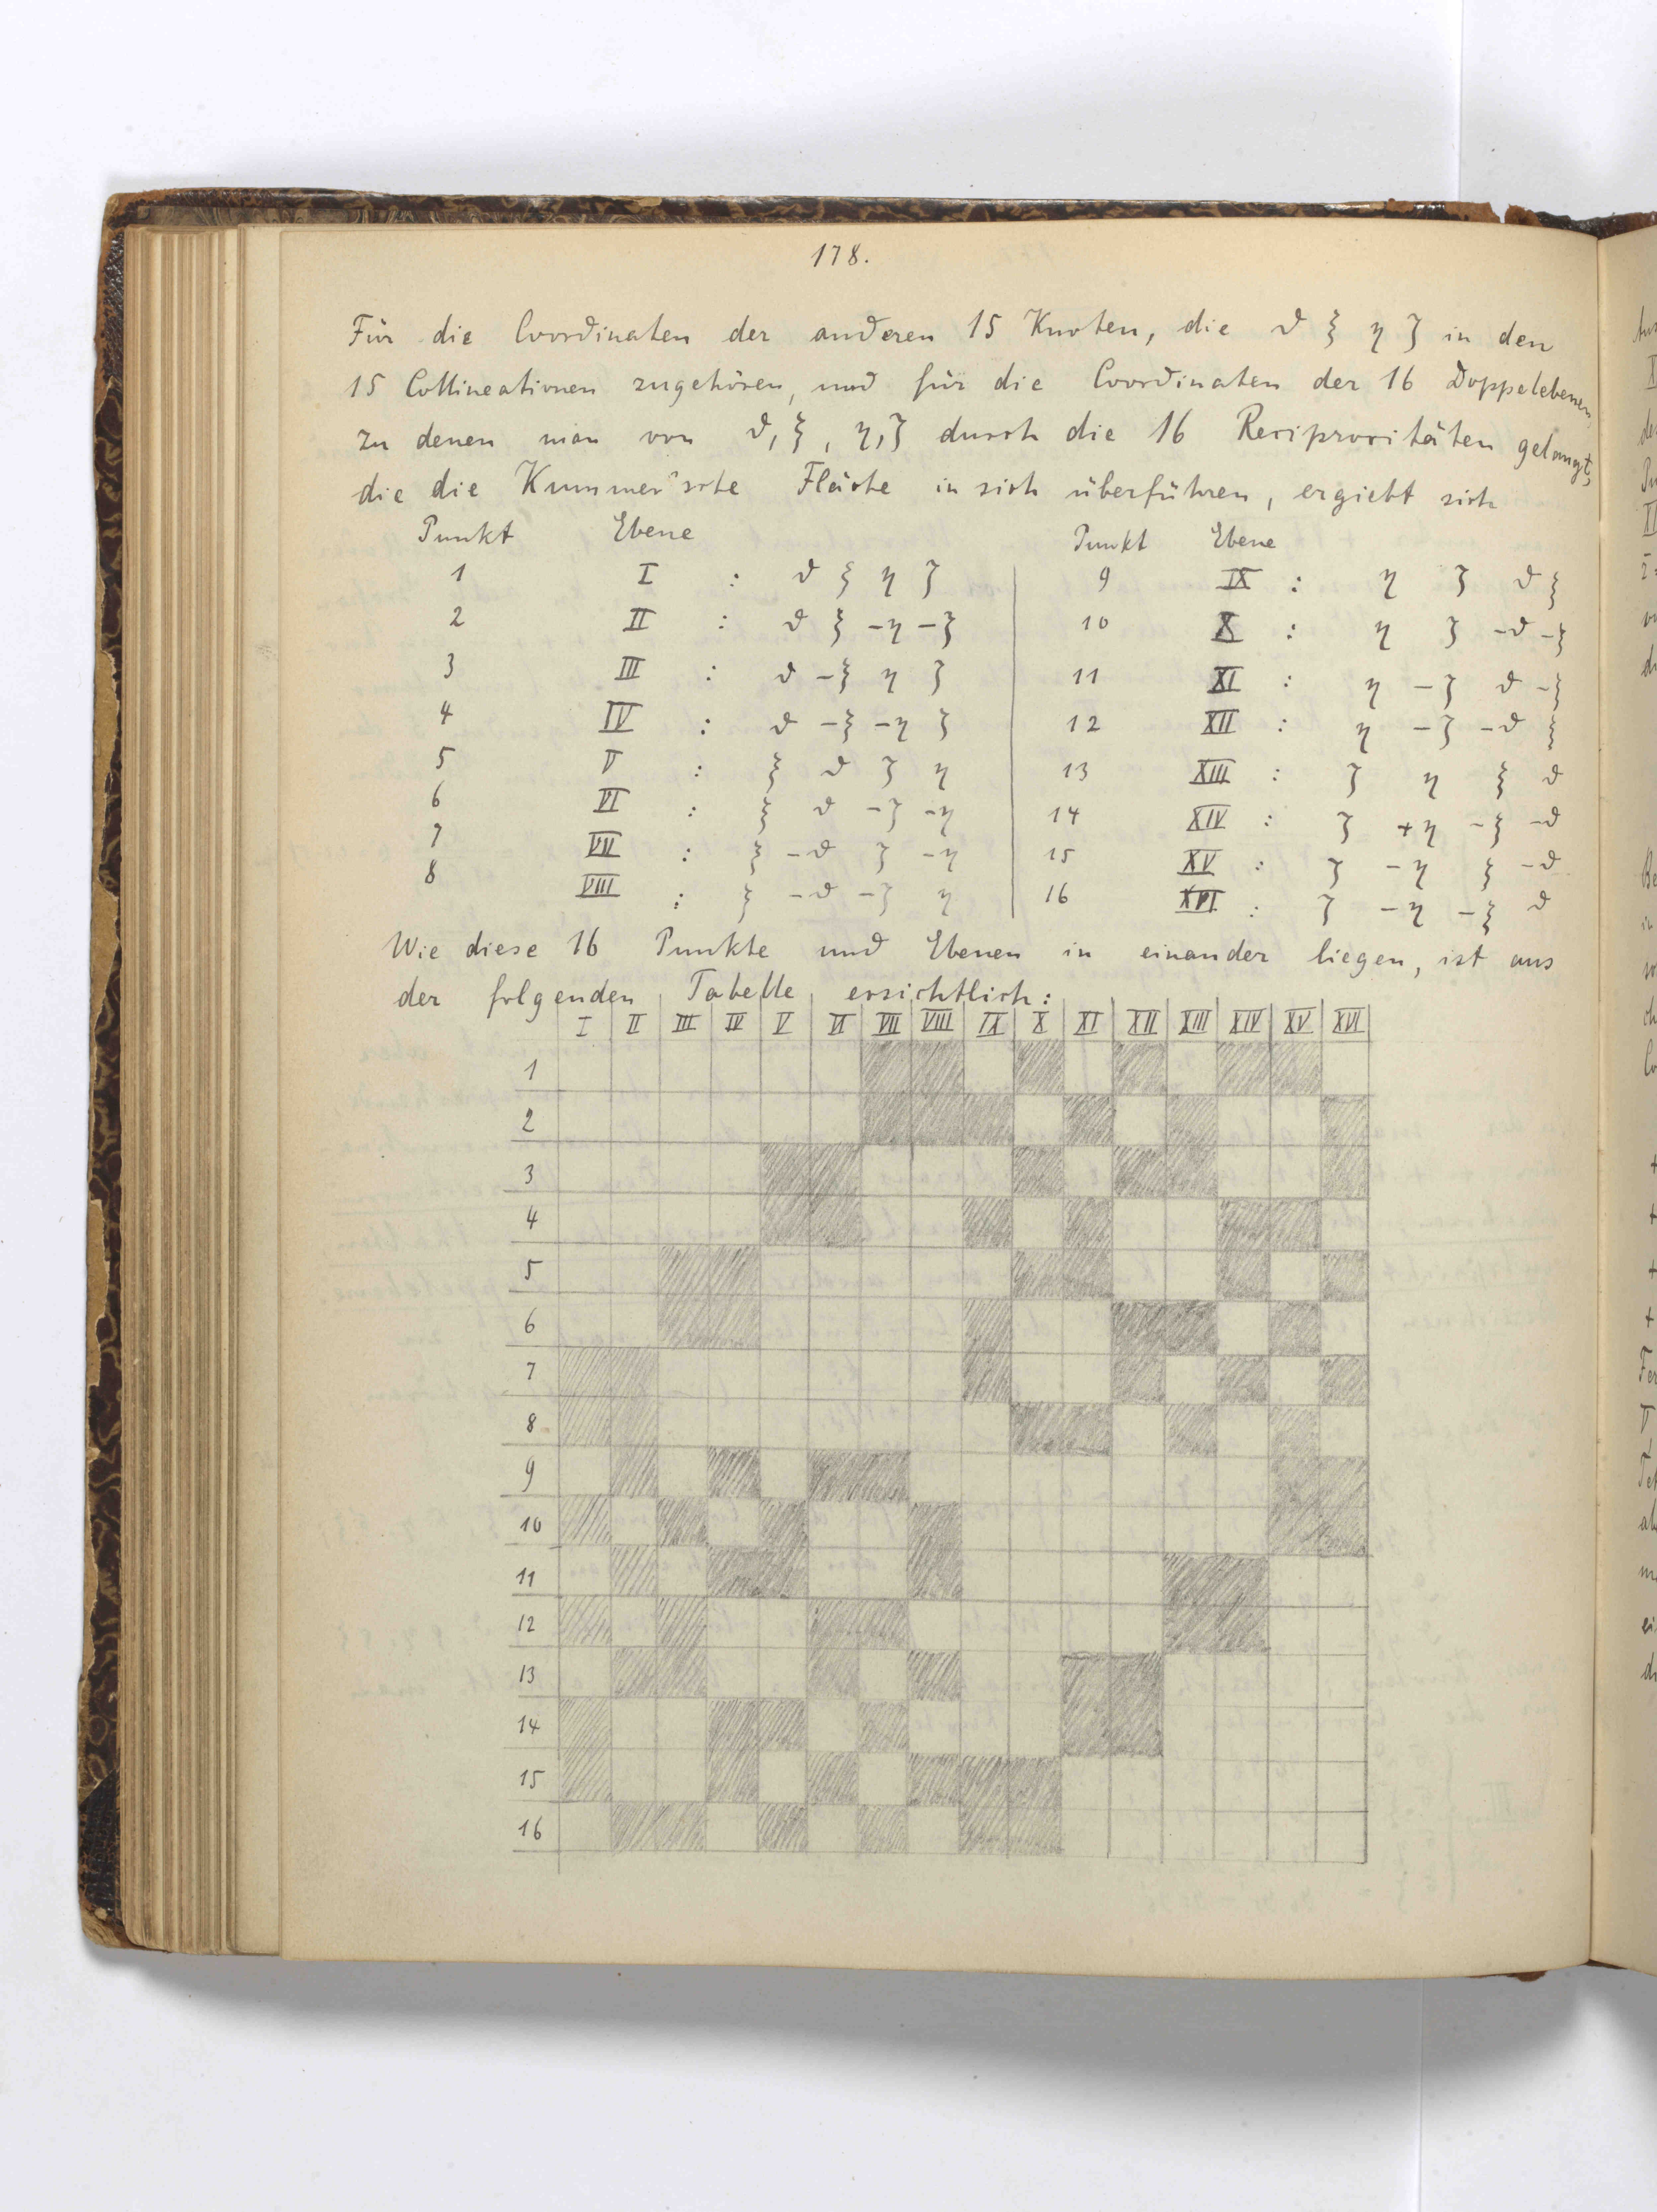 178.
Für die Coordinaten der anderen 15 Knoten, die ϑ ξ η ζ in den
15 Collineationen zugehören, und für die Coordinaten der 16 Doppelebenen,
zu denen man von ϑ, ξ, η, ζ durch die 16 Reciprocitäten gelangt,
die die Kummer'sche Fläche in sich überführen, ergiebt sich
Punkt Ebene Punkt Ebene
1 I : ϑ ξ η ζ 9 IX : η ζ ϑ ξ
2 II : ϑ ξ -η -ζ 10 X : η ζ -ϑ -ξ
3 III : ϑ -ξ η ζ 11 XI : η -ζ ϑ -ξ
4 IV : ϑ -ξ -η ζ 12 XII : η -ζ -ϑ ξ
5 V : ξ ϑ ζ η 13 XIII : ζ η ξ ϑ
6 VI : ξ ϑ -ζ -η 14 XIV : ζ +η -ξ -ϑ
7 VII : ξ -ϑ ζ -η 15 XV : ζ -η ξ -ϑ
8 VIII : ξ -ϑ -ζ η 16 XVI : ζ -η -ξ ϑ
Wie diese 16 Punkte und Ebenen in einander liegen, ist aus
der folgenden Tabelle ersichtlich:
I II III IV V VI VII VIII IX X XI XII XIII XIV XV XVI
1
2
3
4
5
6
7
8
9
10
11
12
13
14
15
16